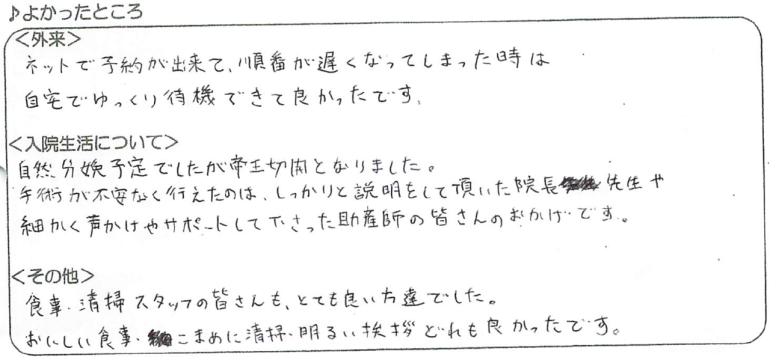 ♪よかったところ
<外来>
ネットで予約が出来て、順番が遅くなってしまった時は
自宅でゆっくり待機できて良かったです。
<入院生活について>
自然分娩予定でしたが帝王切開となりました。
手術が不安なく行えたのは、しっかりと説明をして頂いた院長先生や
細かく声かけやサポートして下さった助産師の皆さんのおかげです。
<その他>
食事・清掃スタッフの皆さんも、とても良い方達でした。
おいしい食事・こまめに清掃・明るい挨拶どれも良かったです。